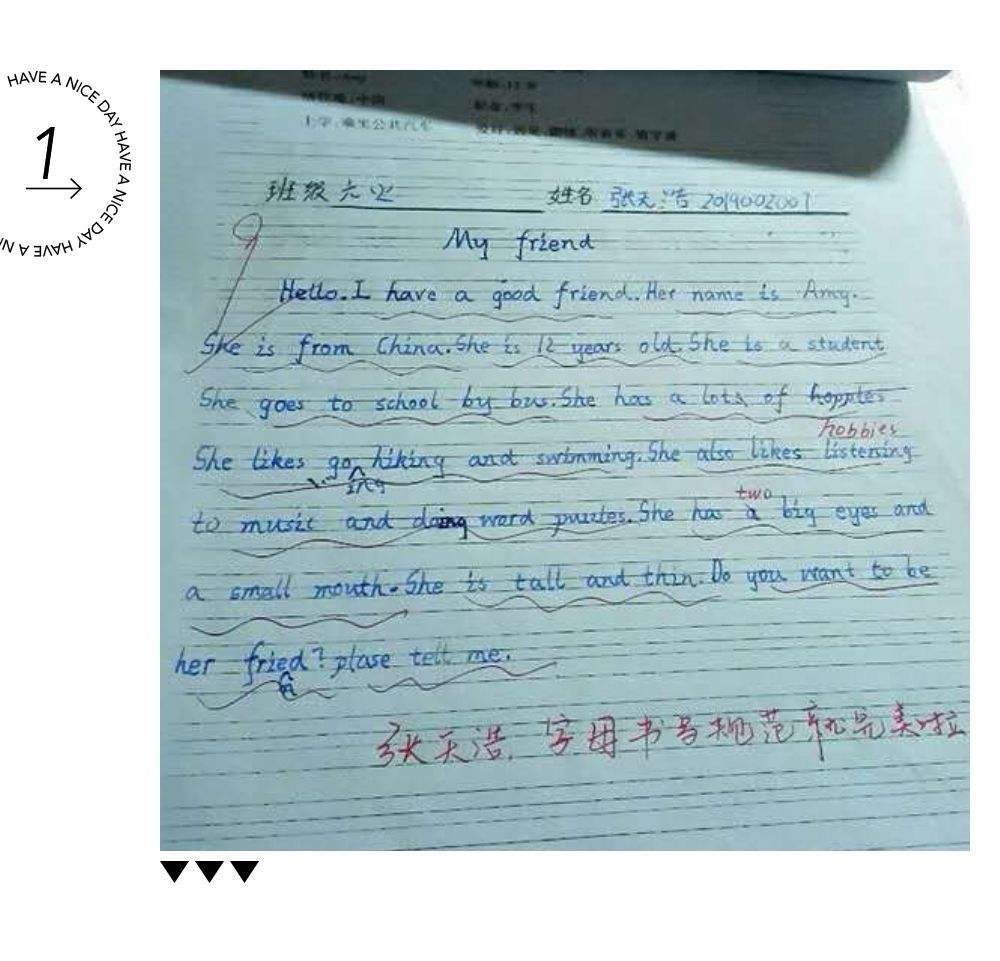 HAVE A NICE DAY HAVE A NICE DAY HAVE A NI
1
12岁
上学:乘坐公共汽车
班级 六 姓名 张天浩 2019002001
My friend
Hello. I have a good friend. Her name is Amy.
She is from China. She is 12 years old. She is a student
She goes to school by bus. She has a lots of hopptes
hobbies
She likes go hiking and swimming. She also likes listening
ing
two
to music and doing word puzztes. She has a big eyes and
a small mouth. She is tall and thin. Do you want to be
her fried? plase tell me.
n
张天浩, 字母书写规范就完美啦